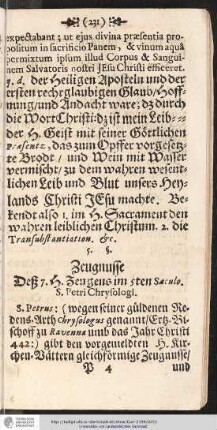 (231)
expectabant; ut ejus divina præsentia pro-
positum in sacrificio Panem, & vinum aquâ
permixtum ipsum illud Corpus & Sangui-
nem Salvatoris nostri JEsu Christi efficeret.
q. d. der Heiligen Aposteln und der
ersten rechtglaubigen Glaub/Hoff-
nung/und Andacht ware; dz durch
die Wort Christi: dz ist mein Leib-
der H. Geist mit seiner Göttlichen
Præsentz, das zum Opffer vorgesetz-
te Brodt/ und Wein mit Wasser
vermischt/ zu dem wahren wesent-
lichen Leib und Blut unsers Hey-
lands Christi JEsu machte. Be-
kendt also 1. im H. Sacrament den
wahren leiblichen Christum. 2. die
Transubstantiation. &c.
§. 5.
Zeugnusse
Deß 7. H. Zeugens im 5ten Sæculo.
S. Petri Chrysologi.
S. Petrus: (wegen seiner güldenen Re-
dens-Arth Chrysologus genannt/Ertz-Bi-
schoff zu Ravenna umb das Jahr Christi
442:) gibt den vorgemeldten H. Kir-
chen-Vättern gleichförmige Zeugnusse/
P 4 und